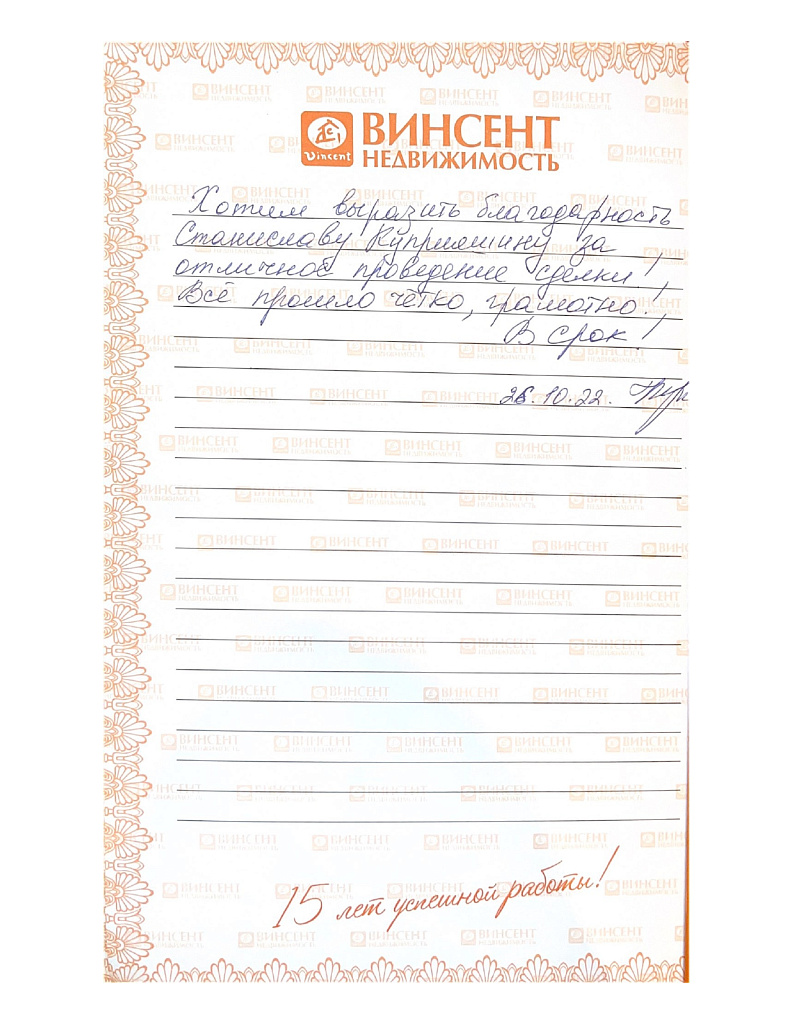 Vincent
ВИНСЕНТ
НЕДВИЖИМОСТЬ
Хотим выразить благодарность
Станиславу Куприяшину за
отличное проведение сделки!
Всё прошло чётко, грамотно!
В срок!
26.10.22.
15 лет успешной работы!